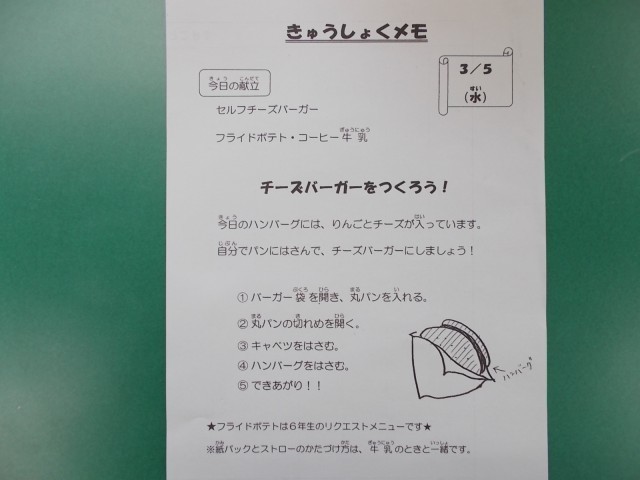 きゅうしょくメモ
3／5
（水）
今日の献立
セルフチーズバーガー
フライドポテト・コーヒー牛乳
チーズバーガーをつくろう！
今日のハンバーグには、りんごとチーズが入っています。
自分でパンにはさんで、チーズバーガーにしましょう！
① バーガー袋を開き、丸パンを入れる。
② 丸パンの切れめを開く。
③ キャベツをはさむ。
④ ハンバーグをはさむ。
⑤ できあがり！！
ハンバーグ
★フライドポテトは６年生のリクエストメニューです★
※紙パックとストローのかたづけ方は、牛乳のときと一緒です。